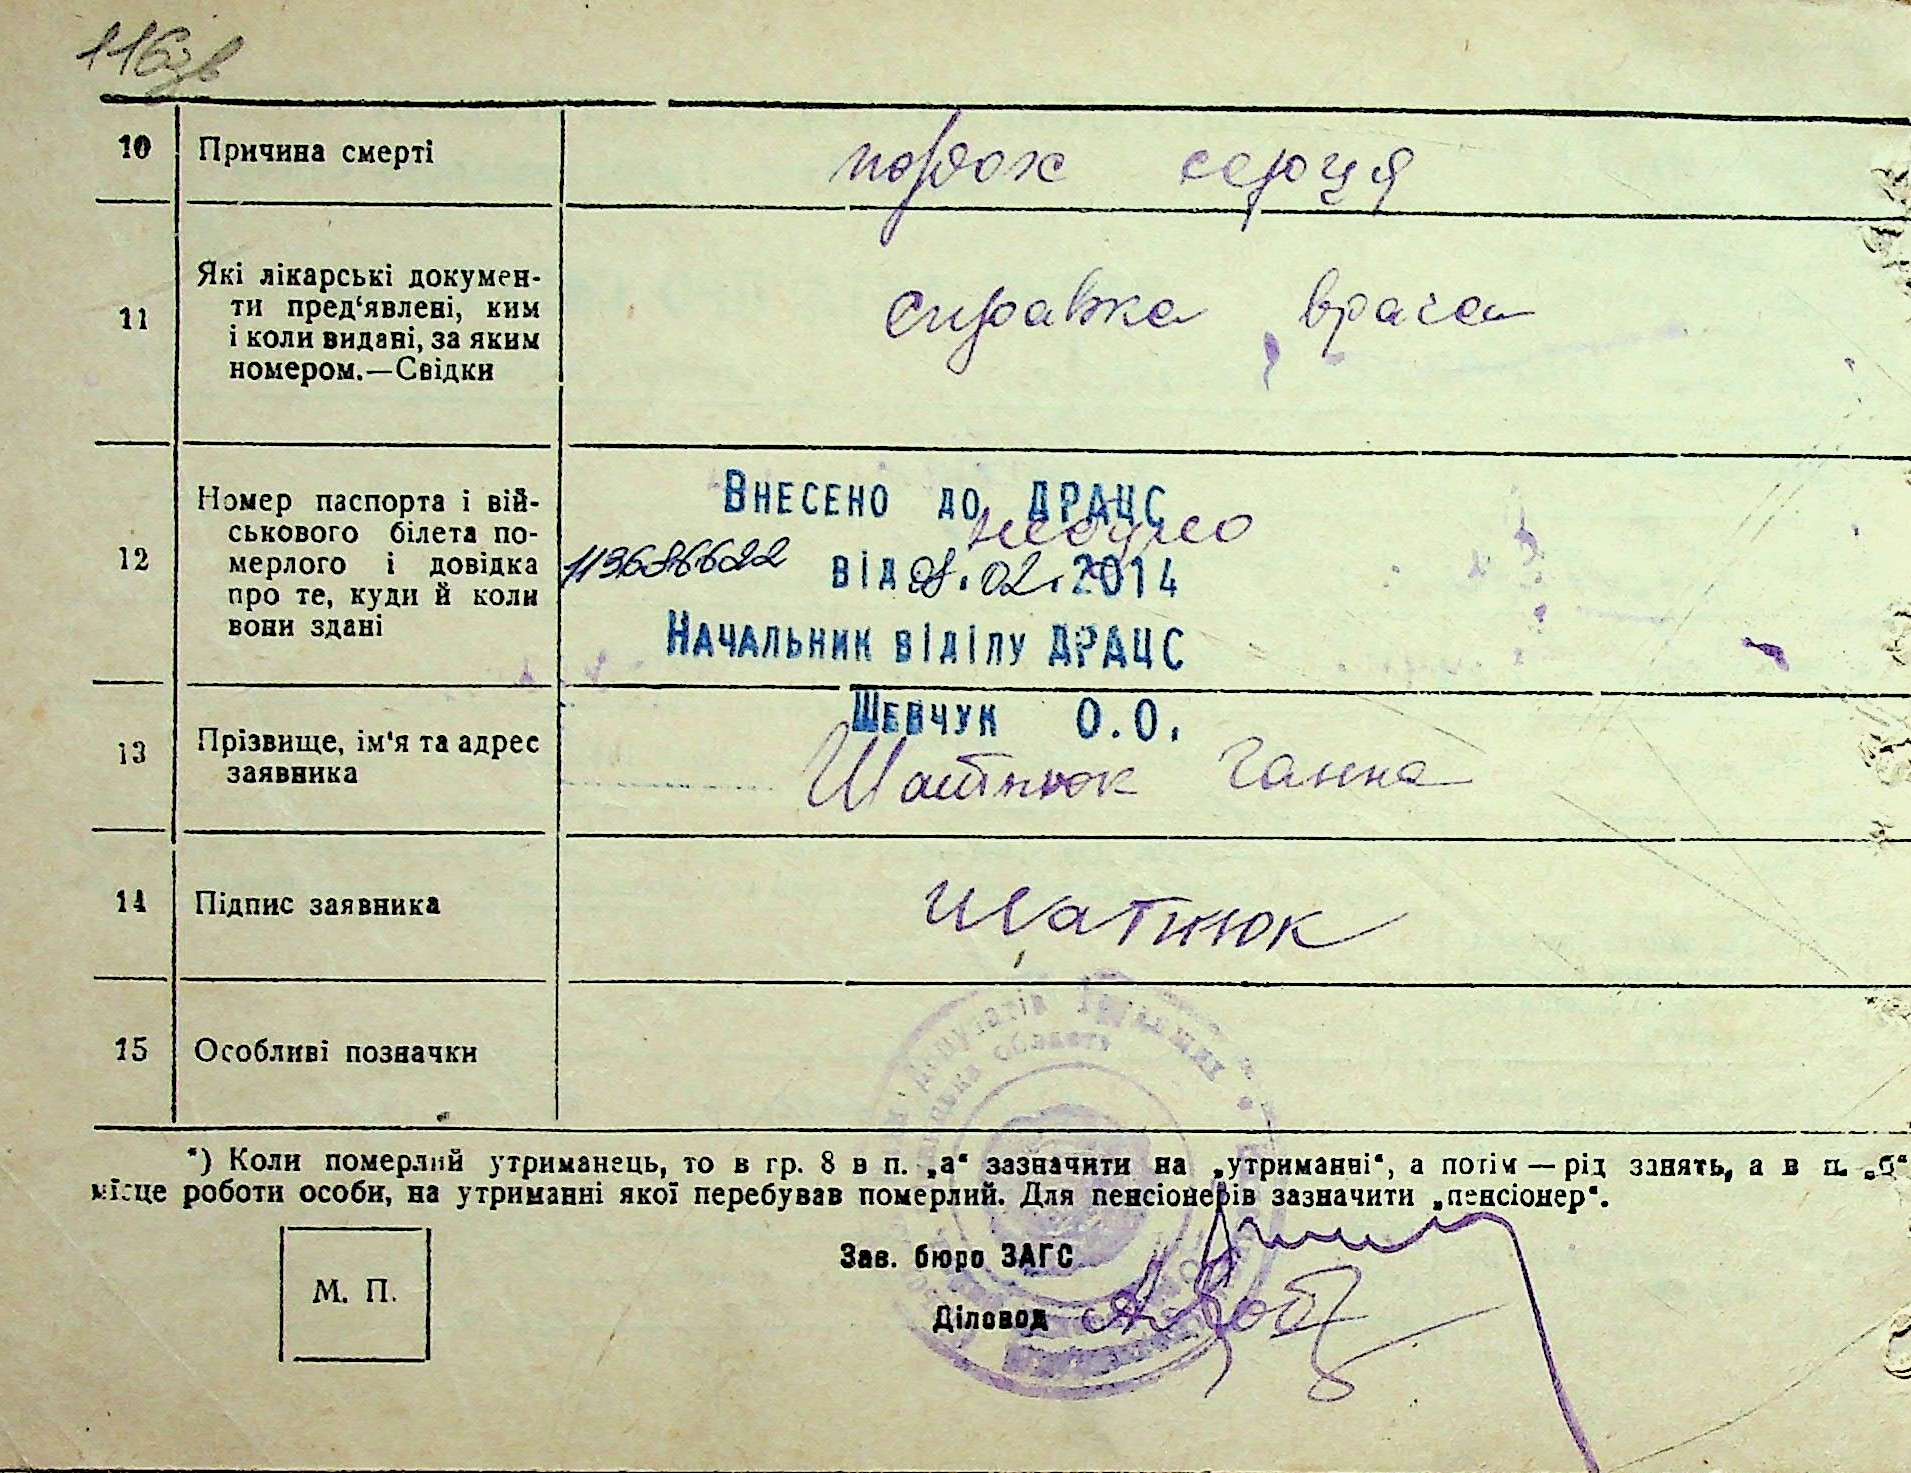 116зв
10 Причина смерті порок серця
11 Які лікарські докумен-
ти пред‘явлені, ким
і коли видані, за яким
номером.—Свідки
справка врача
12 Номер паспорта і вій-
ськового білета по-
мерлого і довідка
про те, куди й коли
вони здані
Внесено до ДРАЦС
не було
від 08.02.2014
Начальник відділу ДРАЦС
Шевчук О.О.
13 Прізвище, ім‘я та адрес
заявника
Шатнюк Ганна
14 Підпис заявника Шатнюк
15 Особливі позначки
*) Коли померлий утриманець, то в гр. 8 в п. „а“ зазначити на „утриманні“, а потім — рід занять, а в п. „б“
місце роботи особи, на утриманні якої перебував померлий. Для пенсіонерів зазначити „пенсіонер“.
Зав. бюро ЗАГС
М. П.
Діловод